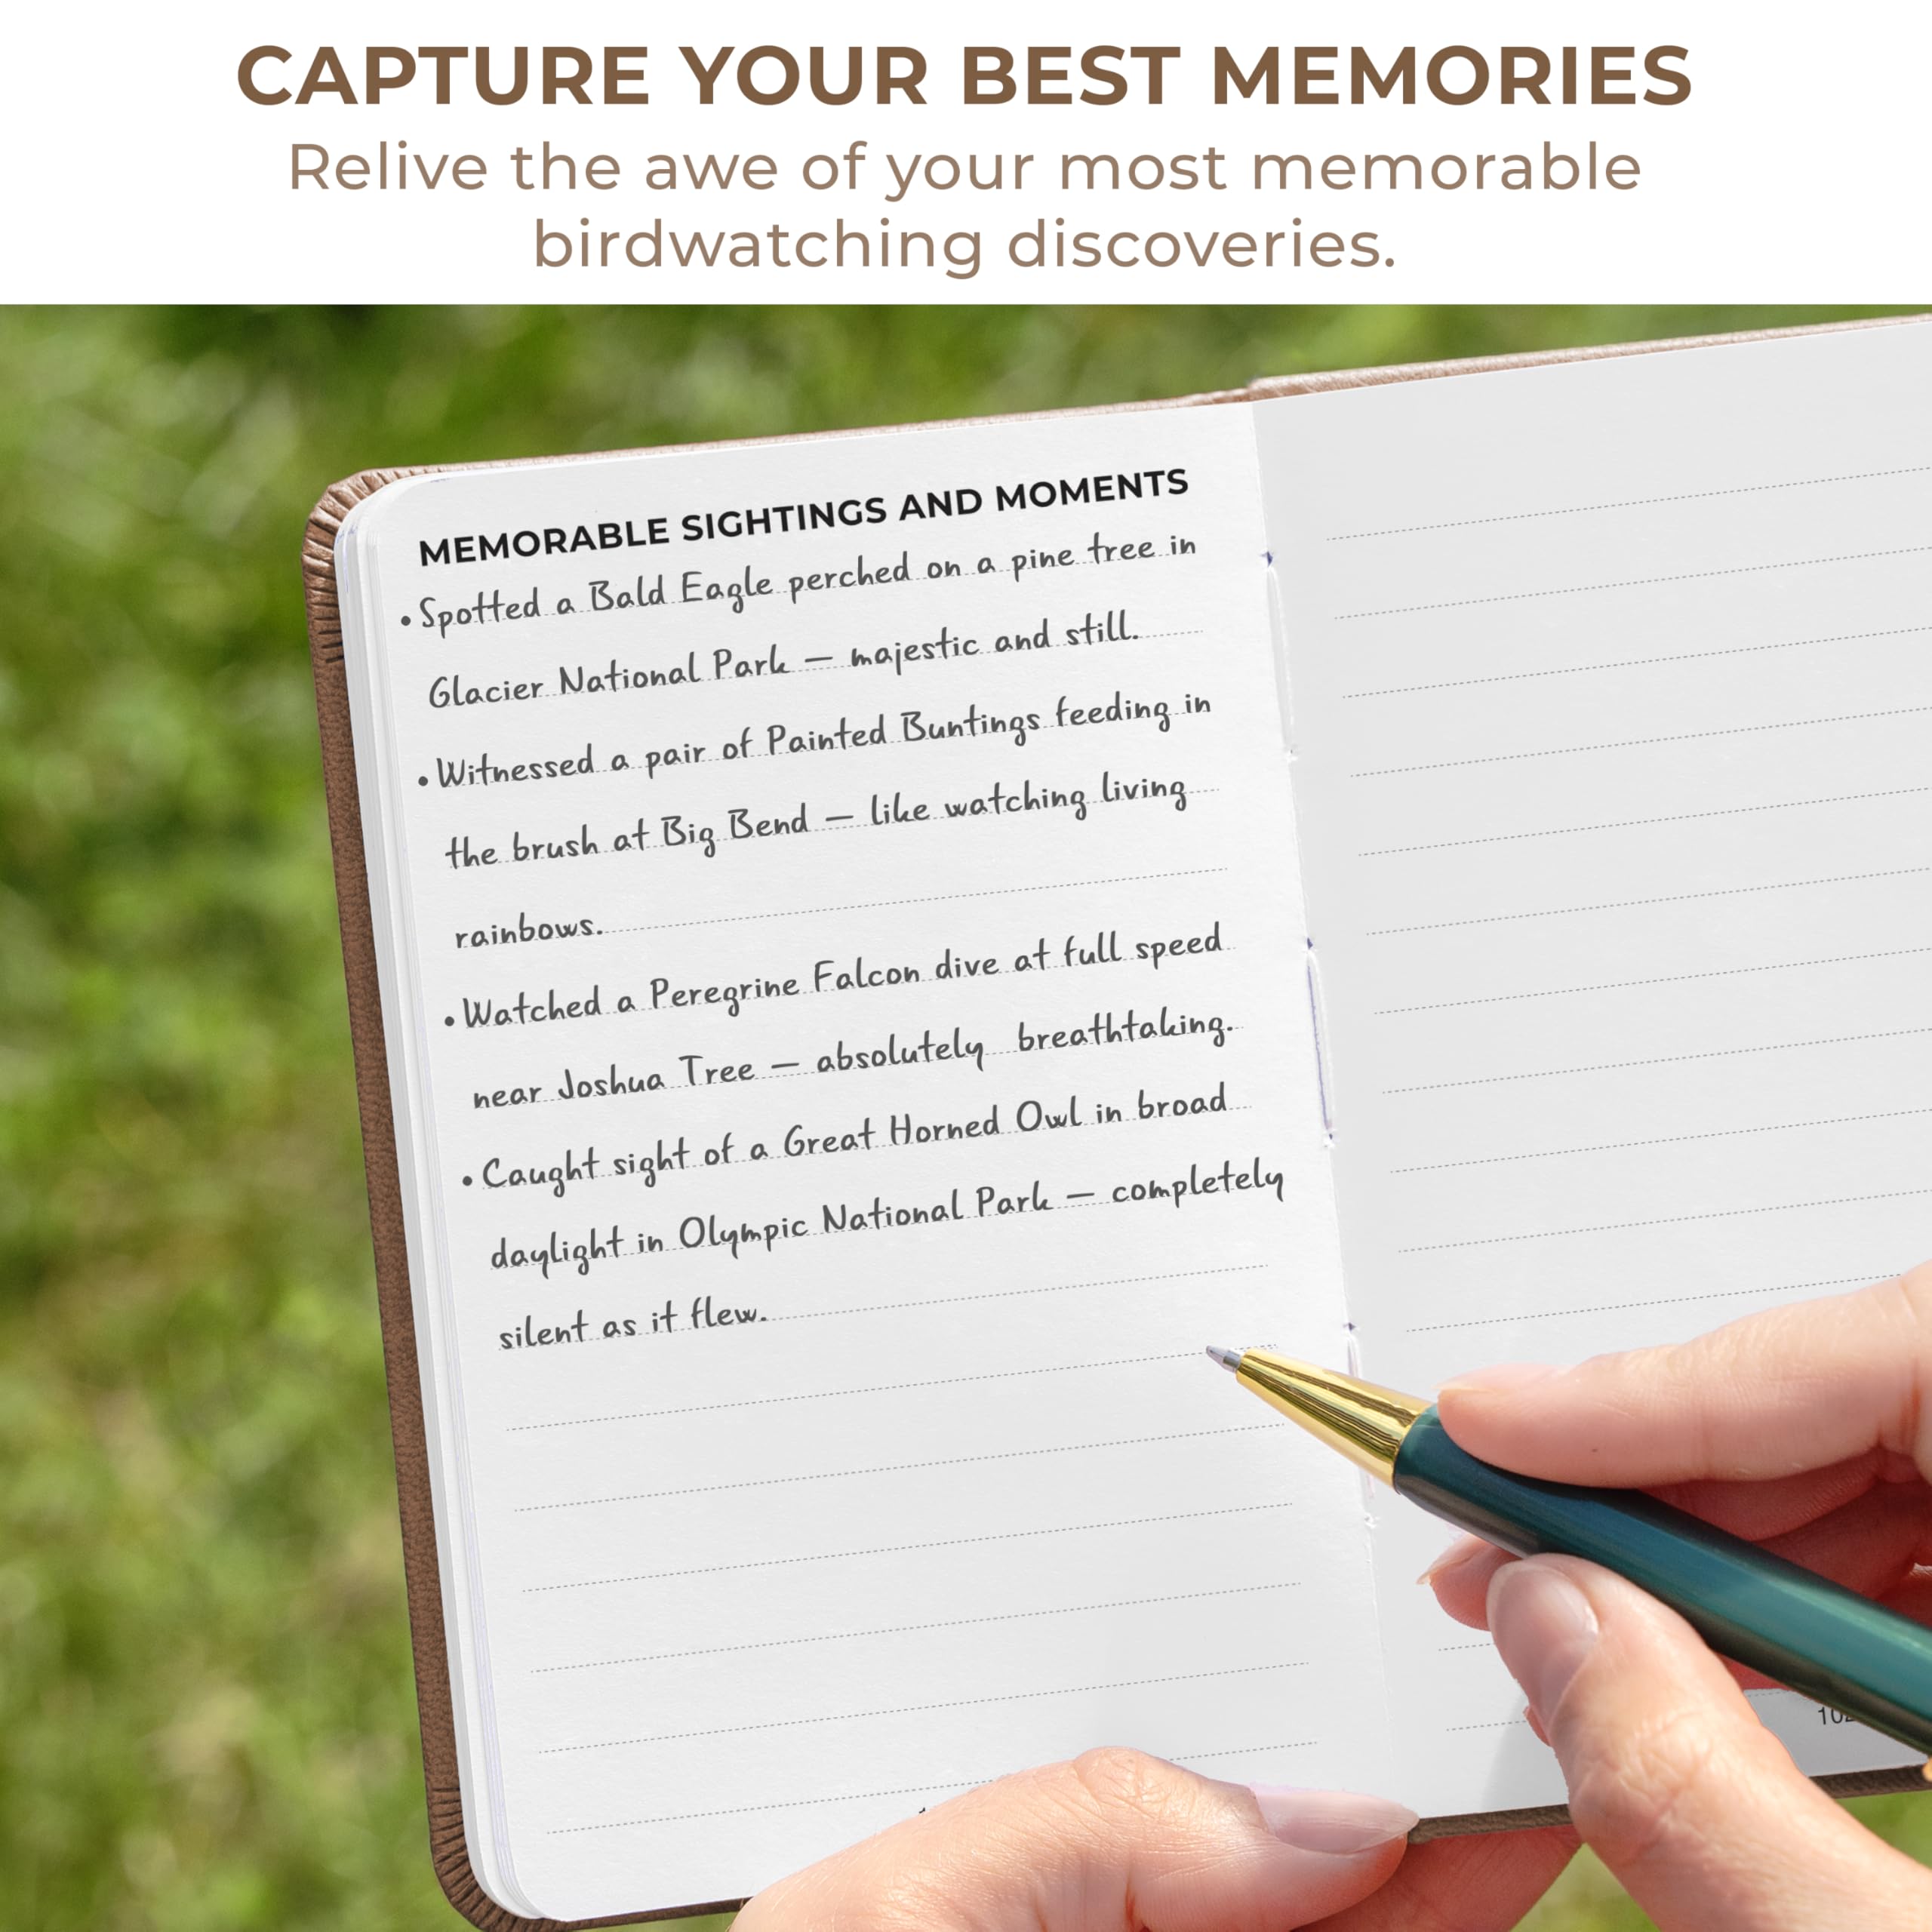 CAPTURE YOUR BEST MEMORIES
Relive the awe of your most memorable
birdwatching discoveries.
MEMORABLE SIGHTINGS AND MOMENTS
• Spotted a Bald Eagle perched on a pine tree in
Glacier National Park – majestic and still.
• Witnessed a pair of Painted Buntings feeding in
the brush at Big Bend – like watching living
rainbows.
• Watched a Peregrine Falcon dive at full speed
near Joshua Tree – absolutely breathtaking.
• Caught sight of a Great Horned Owl in broad
daylight in Olympic National Park – completely
silent as it flew.